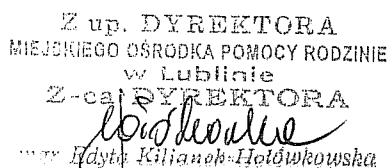 Z up. DYREKTORA
MIEJSKIEGO OŚRODKA POMOCY RODZINIE
w Lublinie
Z-ca DYREKTORA
mgr Edyta Kilianek-Hołówkowska